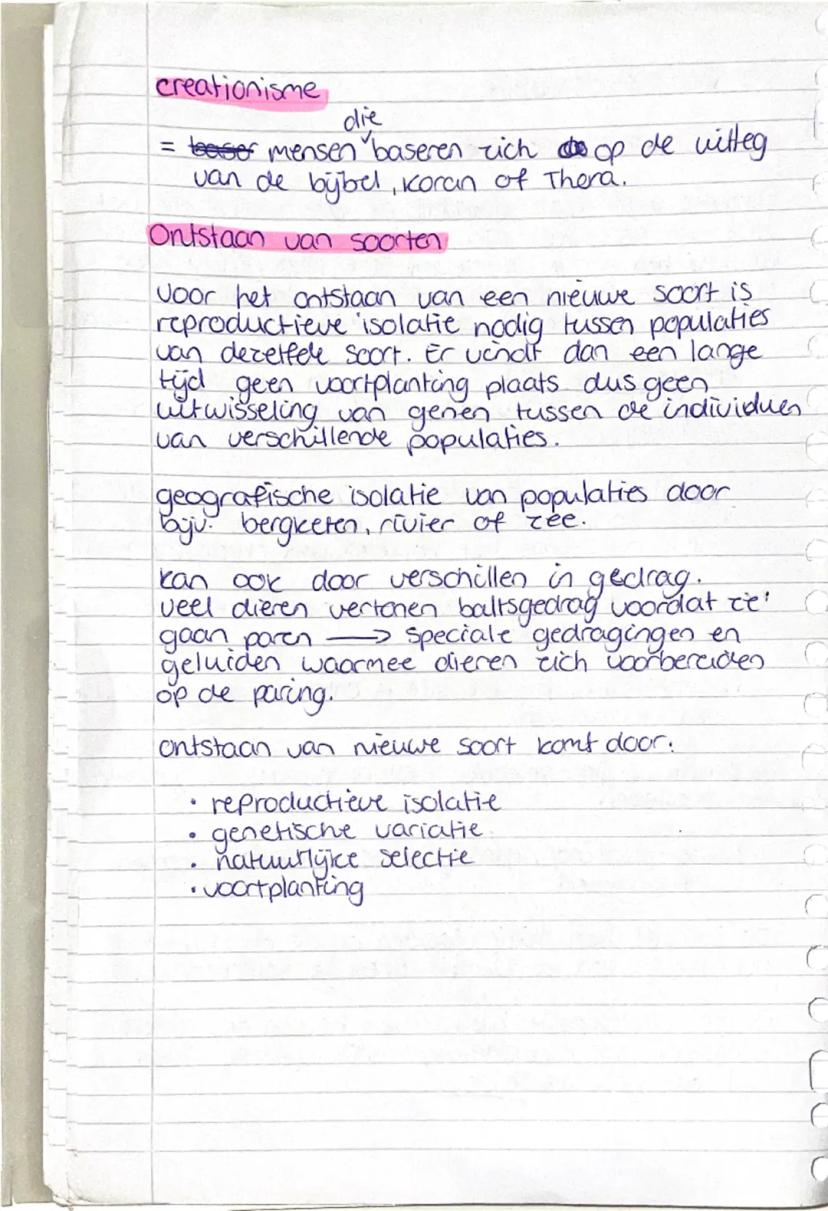 creationisme
die
= mensen baseren zich op de uitleg
van de bijbel, koran of Thora.
Ontstaan van soorten
voor het ontstaan van een nieuwe soort is
reproductieve isolatie nodig tussen populaties
van dezelfde soort. Er vindt dan een lange
tijd geen voortplanting plaats dus geen
uitwisseling van genen tussen de individuen
van verschillende populaties.
geografische isolatie van populaties door
bijv. bergketen, rivier of zee.
kan ook door verschillen in gedrag.
veel dieren vertonen baltsgedrag voordat ze
gaan paren → speciale gedragingen en
geluiden waarmee dieren zich voorbereiden
op de paring.
ontstaan van nieuwe soort komt door:
• reproductieve isolatie
• genetische variatie
• natuurlijke selectie
• voortplanting